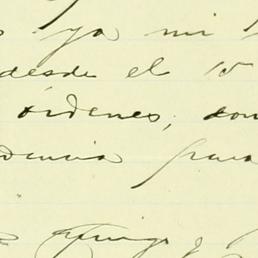 ya mi
desde el 15
órdenes, con
dencia para
Amigo y